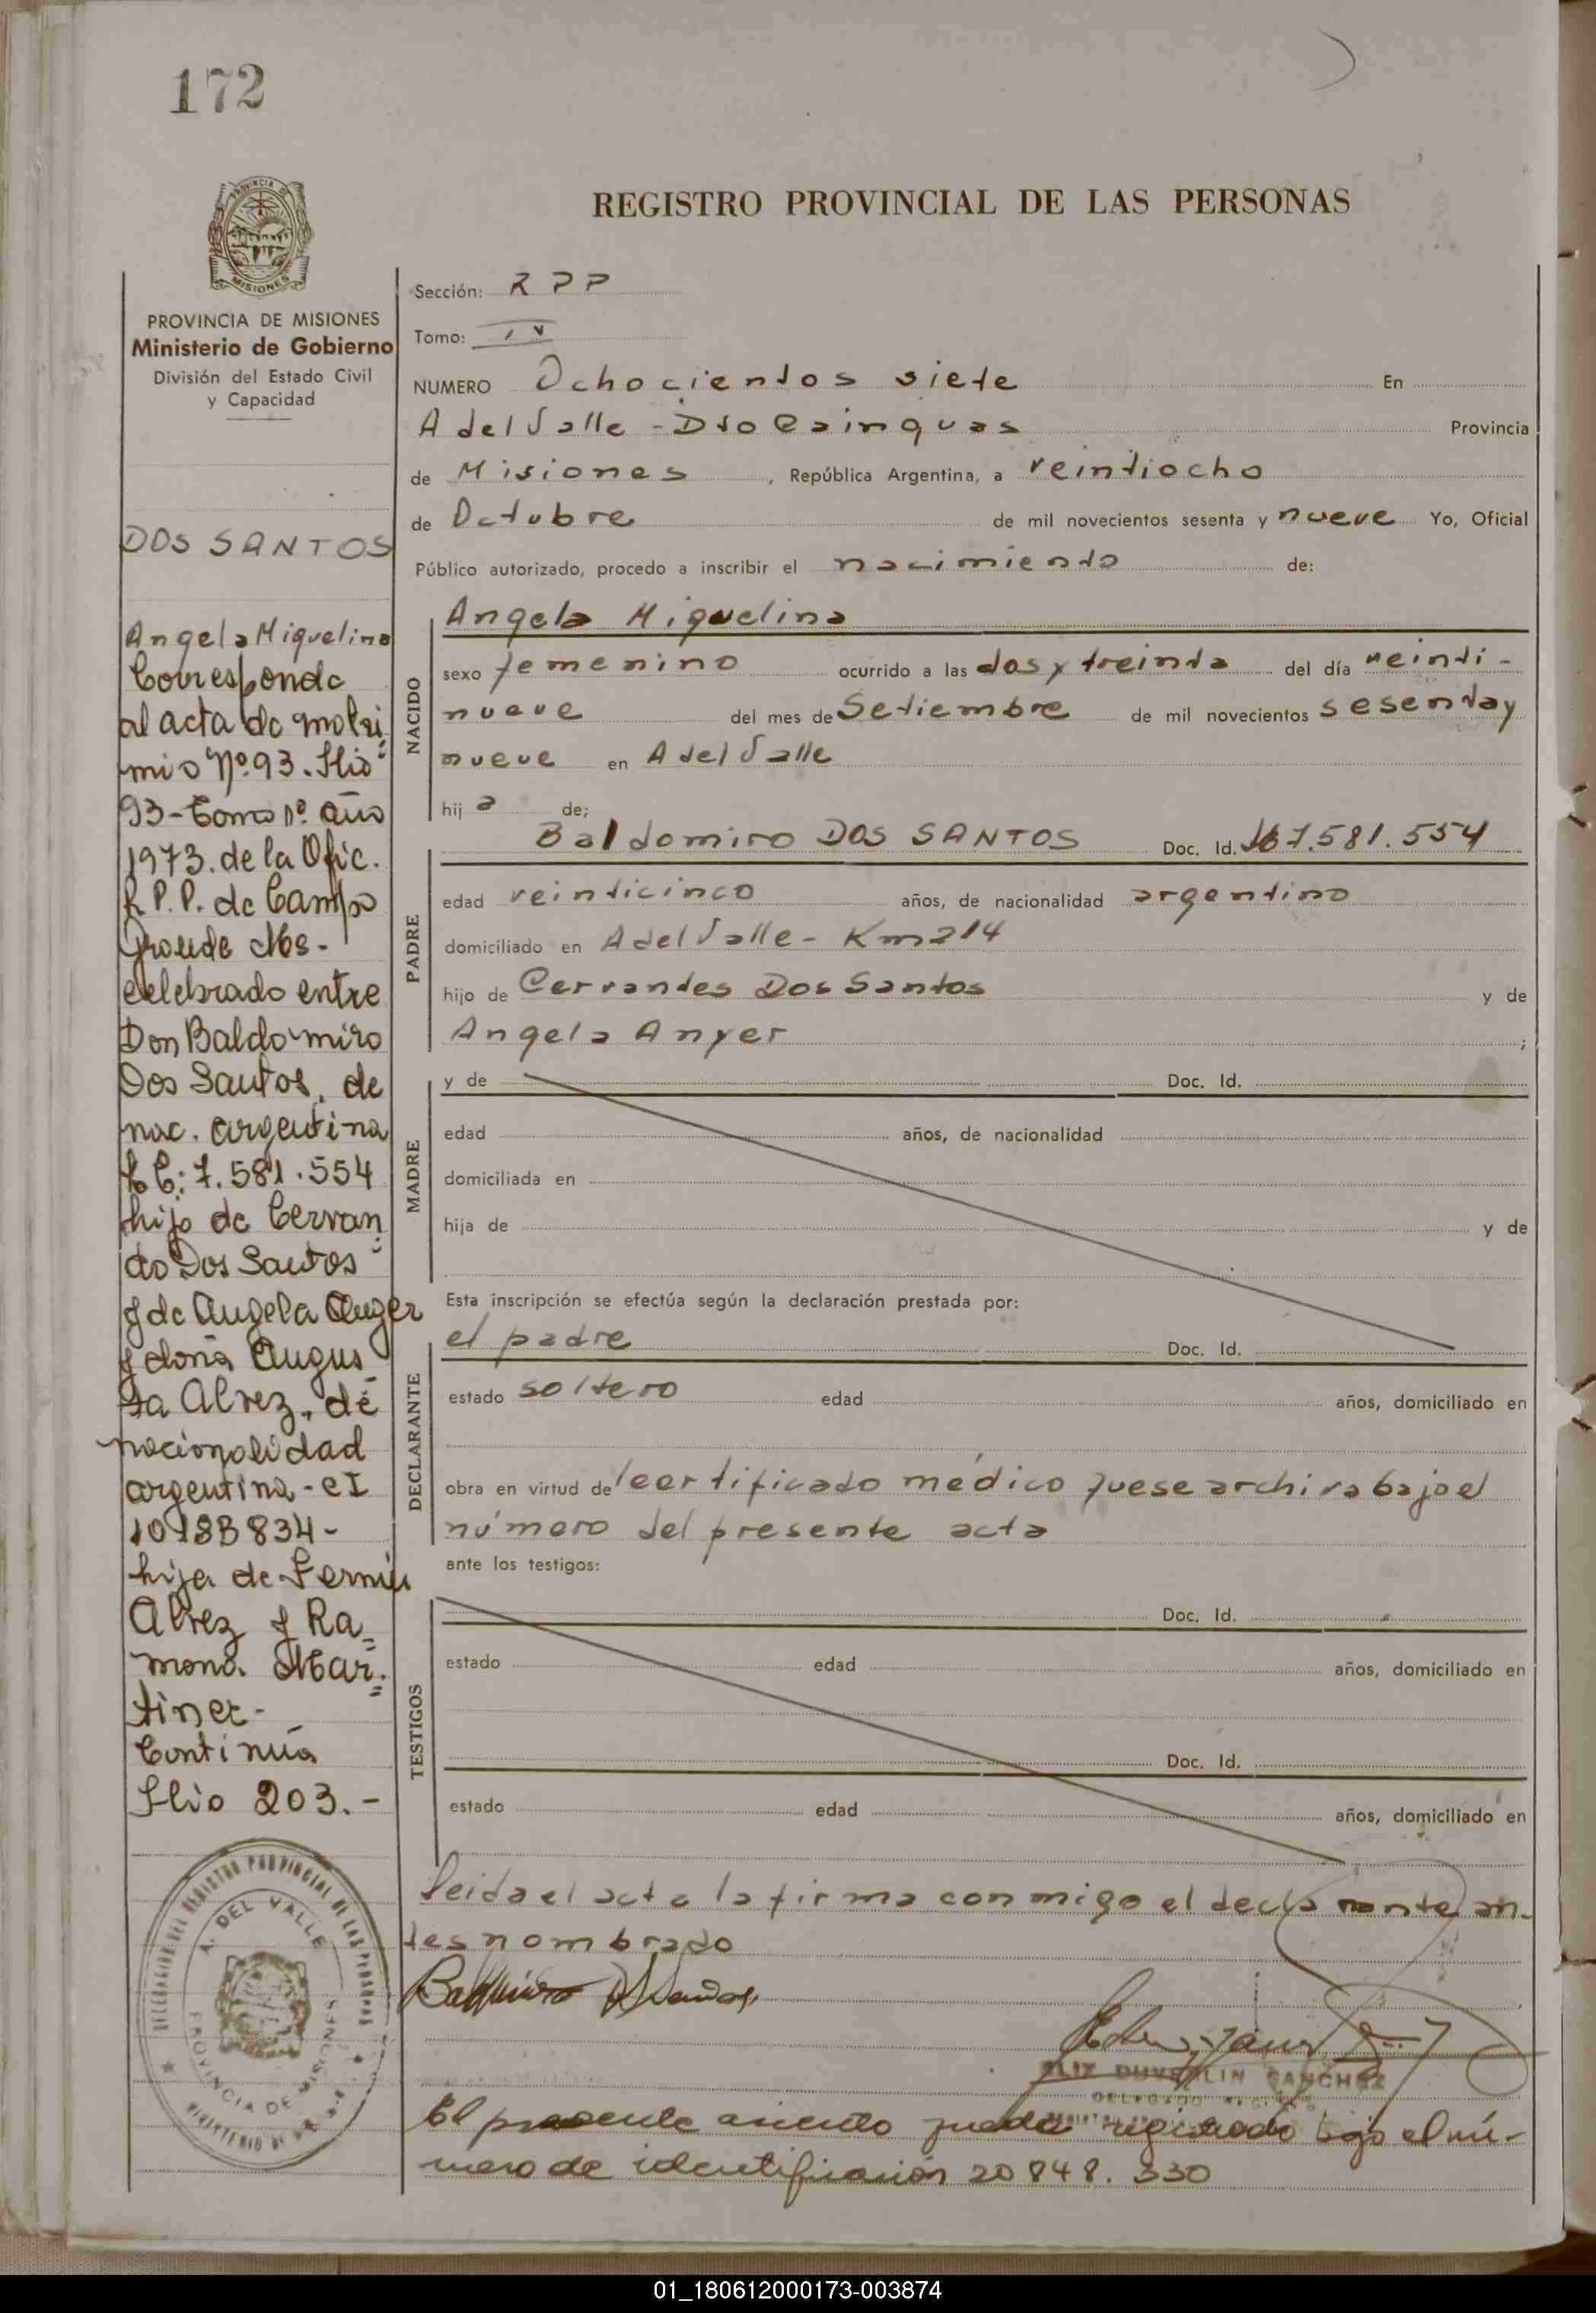 172
PROVINCIA DE
MISIONES
PROVINCIA DE MISIONES
Ministerio de Gobierno
División del Estado Civil
y Capacidad
DOS SANTOS
Angela Miquelina
Corresponde
al acta de matri
mio Nº 93. Flio
93 - Tomo 1º año
1973. de la Ofic.
R.P.P. de Campo
Grande Mes -
celebrado entre
Don Baldomiro
Dos Santos, de
nac. argentina
C: 7.581.554
hijo de Cervan
do Dos Santos
y de Angela Anger
y doña Augus
ta Alvez, de
nacionalidad
argentina - CI
hija de Fermin
Alvez y Ra
mona Mar
tinez -
Continúa
Flio 203.-
DELEGACION DEL REGISTRO PROVINCIAL DE LAS PERSONAS
A. DEL VALLE
PROVINCIA DE MISIONES
REGISTRO PROVINCIAL DE LAS PERSONAS
Sección: R P P
Tomo: IV
NUMERO Ochocientos siete En
A del Valle - Dto Cainguas Provincia
de Misiones, República Argentina, a veintiocho
de Octubre de mil novecientos sesenta y nueve Yo, Oficial
Público autorizado, procedo a inscribir el nacimiento de:
NACIDO
Angela Miquelina
sexo femenino ocurrido a las dos y treinta del día veinti-
nueve del mes de Setiembre de mil novecientos sesenta y
nueve en A del Valle
hij a de;
PADRE
Baldomiro DOS SANTOS Doc. Id. 7.581.554
edad veinticinco años, de nacionalidad argentino
domiciliado en A del Valle - Km 214
hijo de Cervandes Dos Santos y de
Angela Anyer ;
MADRE
y de Doc. Id.
edad años, de nacionalidad
domiciliada en
hija de y de
Esta inscripción se efectúa según la declaración prestada por:
DECLARANTE
el padre Doc. Id.
estado soltero edad años, domiciliado en
obra en virtud de certificado médico que se archiva bajo el
número del presente acta
ante los testigos:
TESTIGOS
Doc. Id.
estado edad años, domiciliado en
Doc. Id.
estado edad años, domiciliado en
Leida el acta la firma conmigo el declarante an-
tes nombrado
DUVERLIN SANCHEZ
DELEGADO
El presente asiento queda registrado bajo el nú-
mero de identificación 20 848. 330
01_180612000173-003874